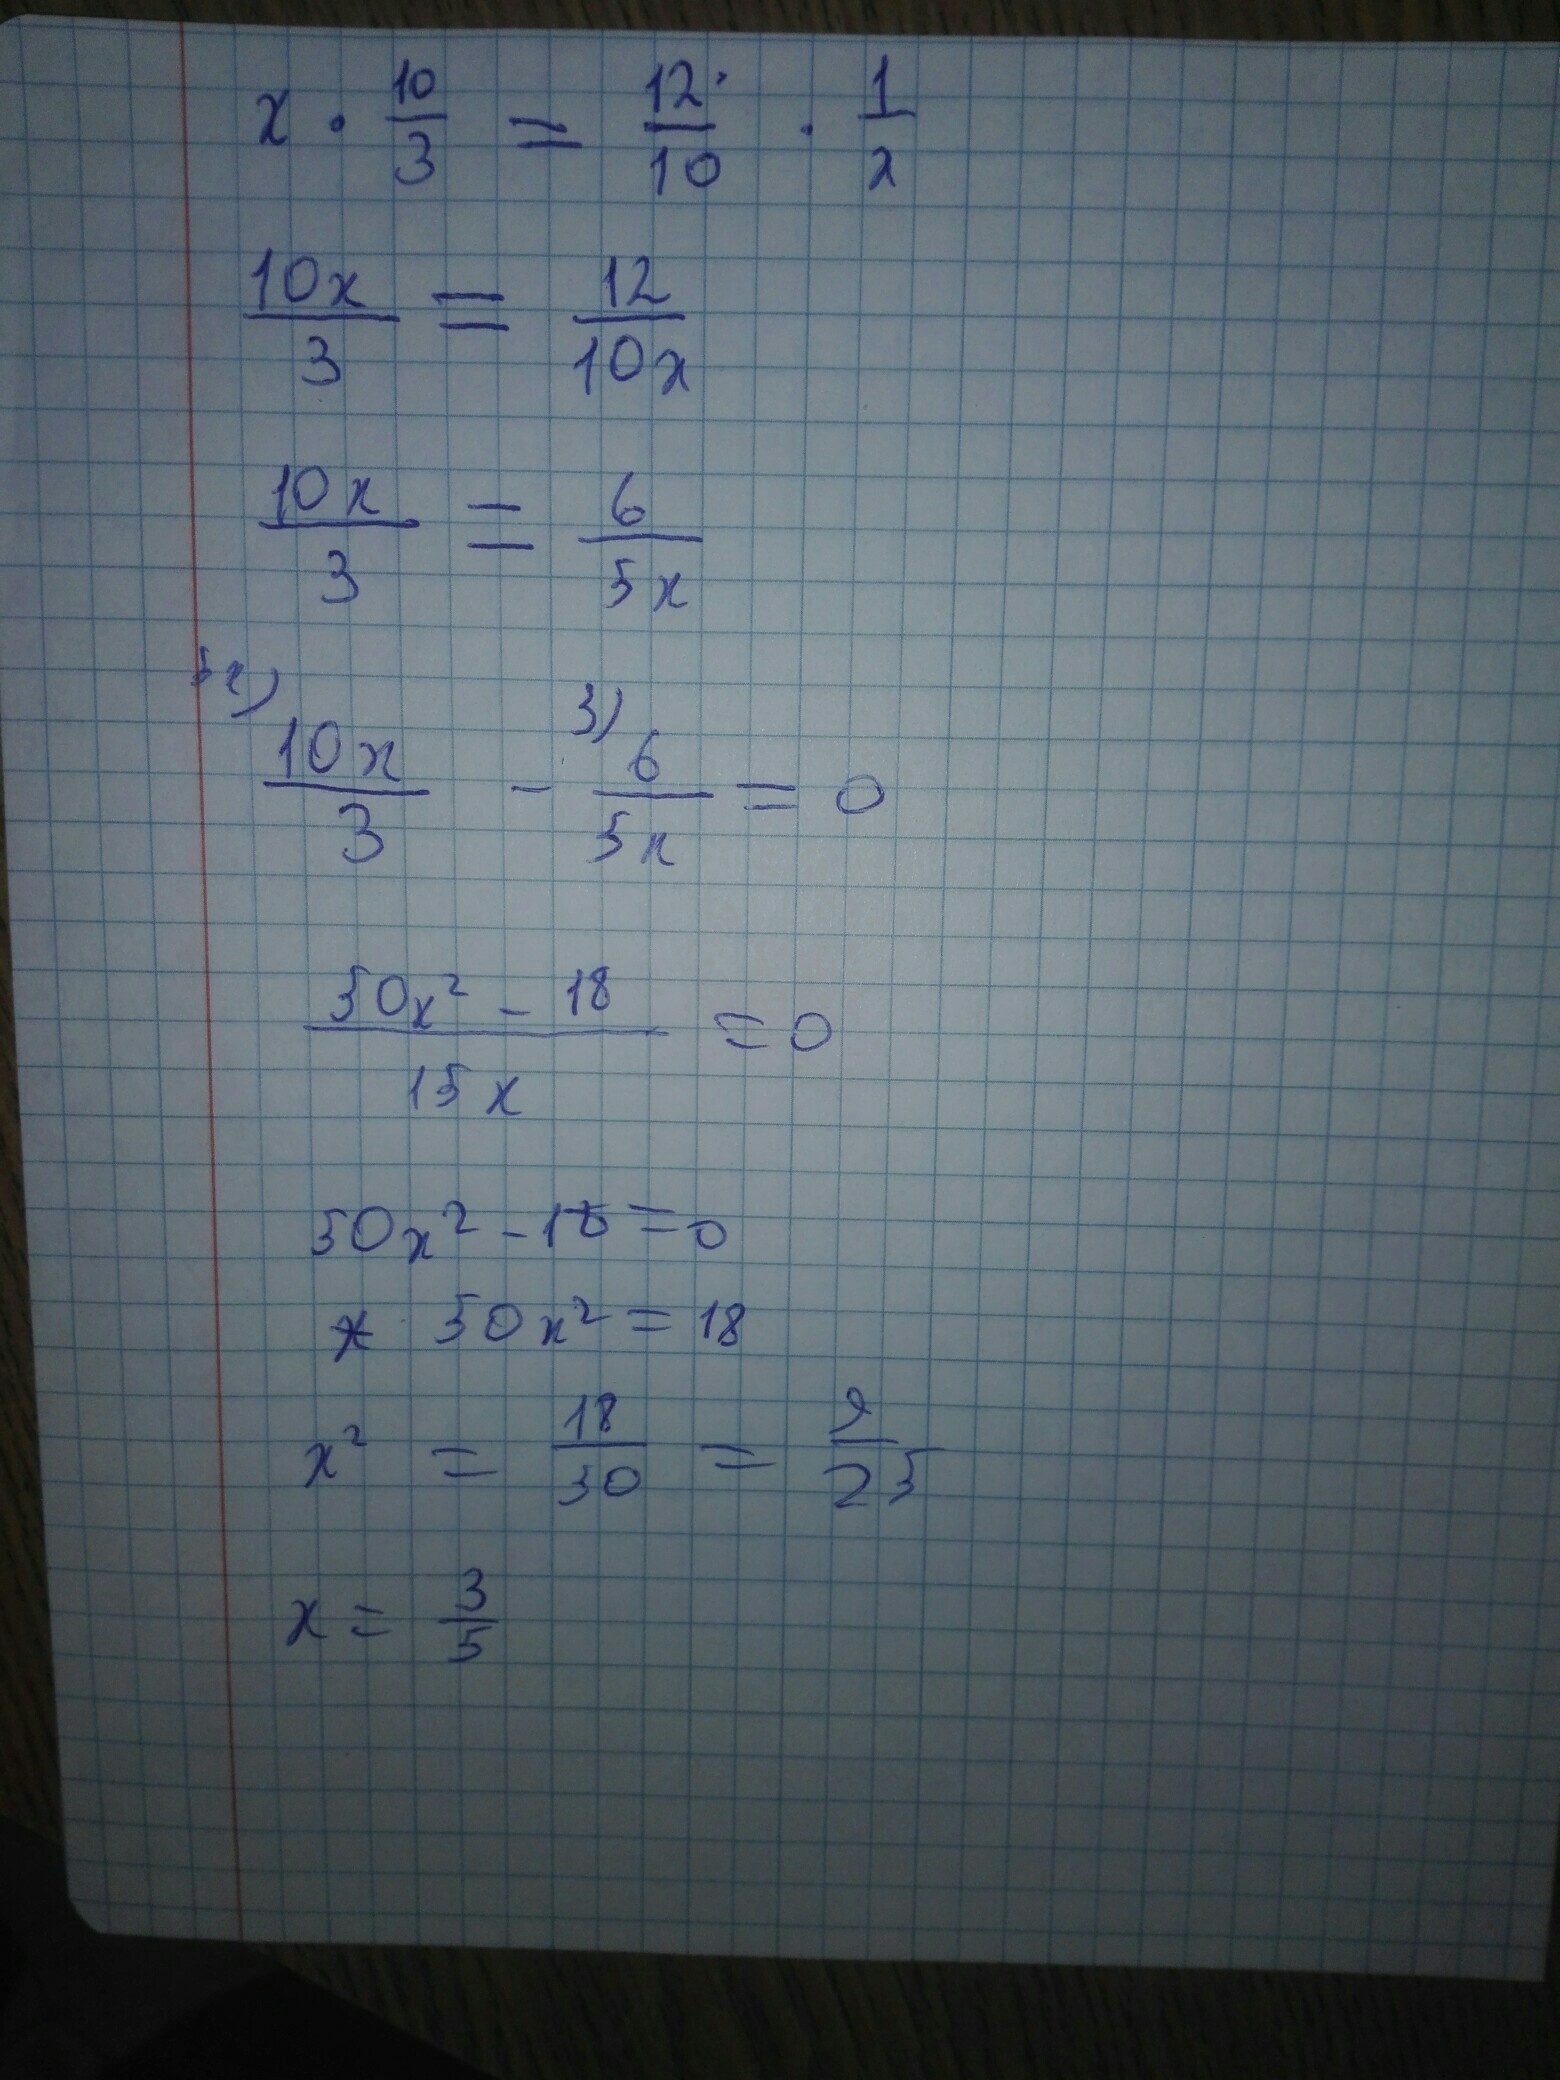 x · 10/3 = 12/10 · 1/x
10x/3 = 12/10x
10x/3 = 6/5x
5x) 10x/3 - 3) 6/5x = 0
50x² - 18 / 15x = 0
50x² - 18 = 0
50x² = 18
x² = 18/50 = 9/25
x = 3/5